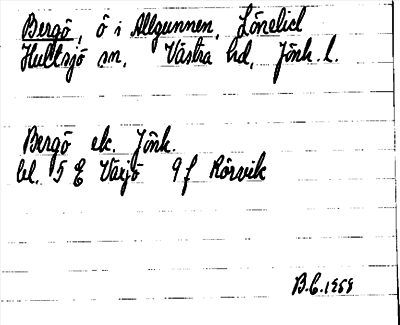 Bergö, ö i Allgunnen, Lönelid
Hultsjö sn, Västra hd, Jönk. l.
Bergö ek. Jönk.
bl. 5 E Växjö 9 f Rörvik
B.E. 1958